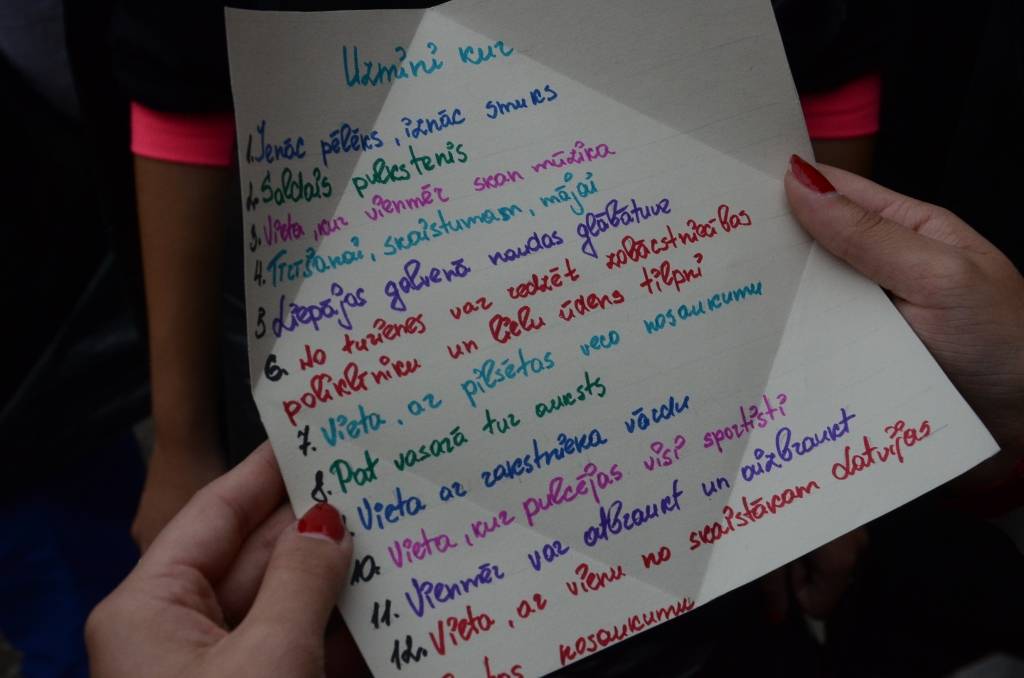 Uzmini kur
1. Ienāc pelēks, iznāc smuks
2. Saldais pulkstenis
3. Vieta, kur vienmēr skan mūzika
4. Tīrīšanai, skaistumam, mājai
5. Liepājas galvenā naudas glābātuve
6. No turienes var redzēt zobācstniecības
polikliniku un lielu ūdens tilpni
7. Vieta, ar pilsētas veco nosaukumu
8. Pat vasarā tur auksts
Vieta ar rakstnieka vārdu
10. Vieta, kur pulcējas visi sportisti
11. Vienmēr var atbraukt un aizbraukt
12. Vieta, ar vienu no skaistākam Latvijas
nosaukumu